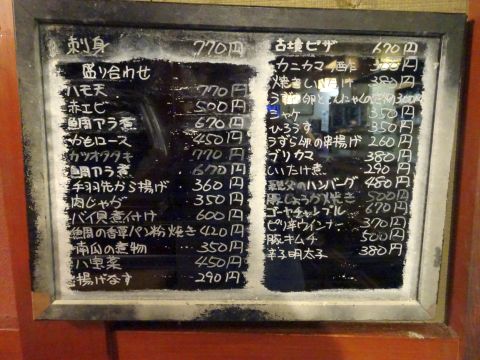 刺身 770円
盛り合わせ
ハモ天 770円
赤エビ 500円
鯛アラ煮 670円
かもロース 450円
カツオタタキ 770円
鯛アラ煮 670円
手羽先から揚げ 360円
肉じゃが 350円
バイ貝煮付け 600円
鯛の香草パン粉焼き 420円
南瓜の煮物 350円
八宝菜 450円
揚げなす 290円
古墳ピザ 670円
カニカマ 酢
焼きいか
シャケ 350円
ひろうす 350円
うずら卵の串揚げ 260円
ブリカマ 380円
しいたけ煮 290円
親父のハンバーグ 480円
豚しょうが焼き 500円
ゴーヤチャンプルー 670円
ピリ辛ウインナー 370円
豚キムチ 500円
辛子明太子 380円